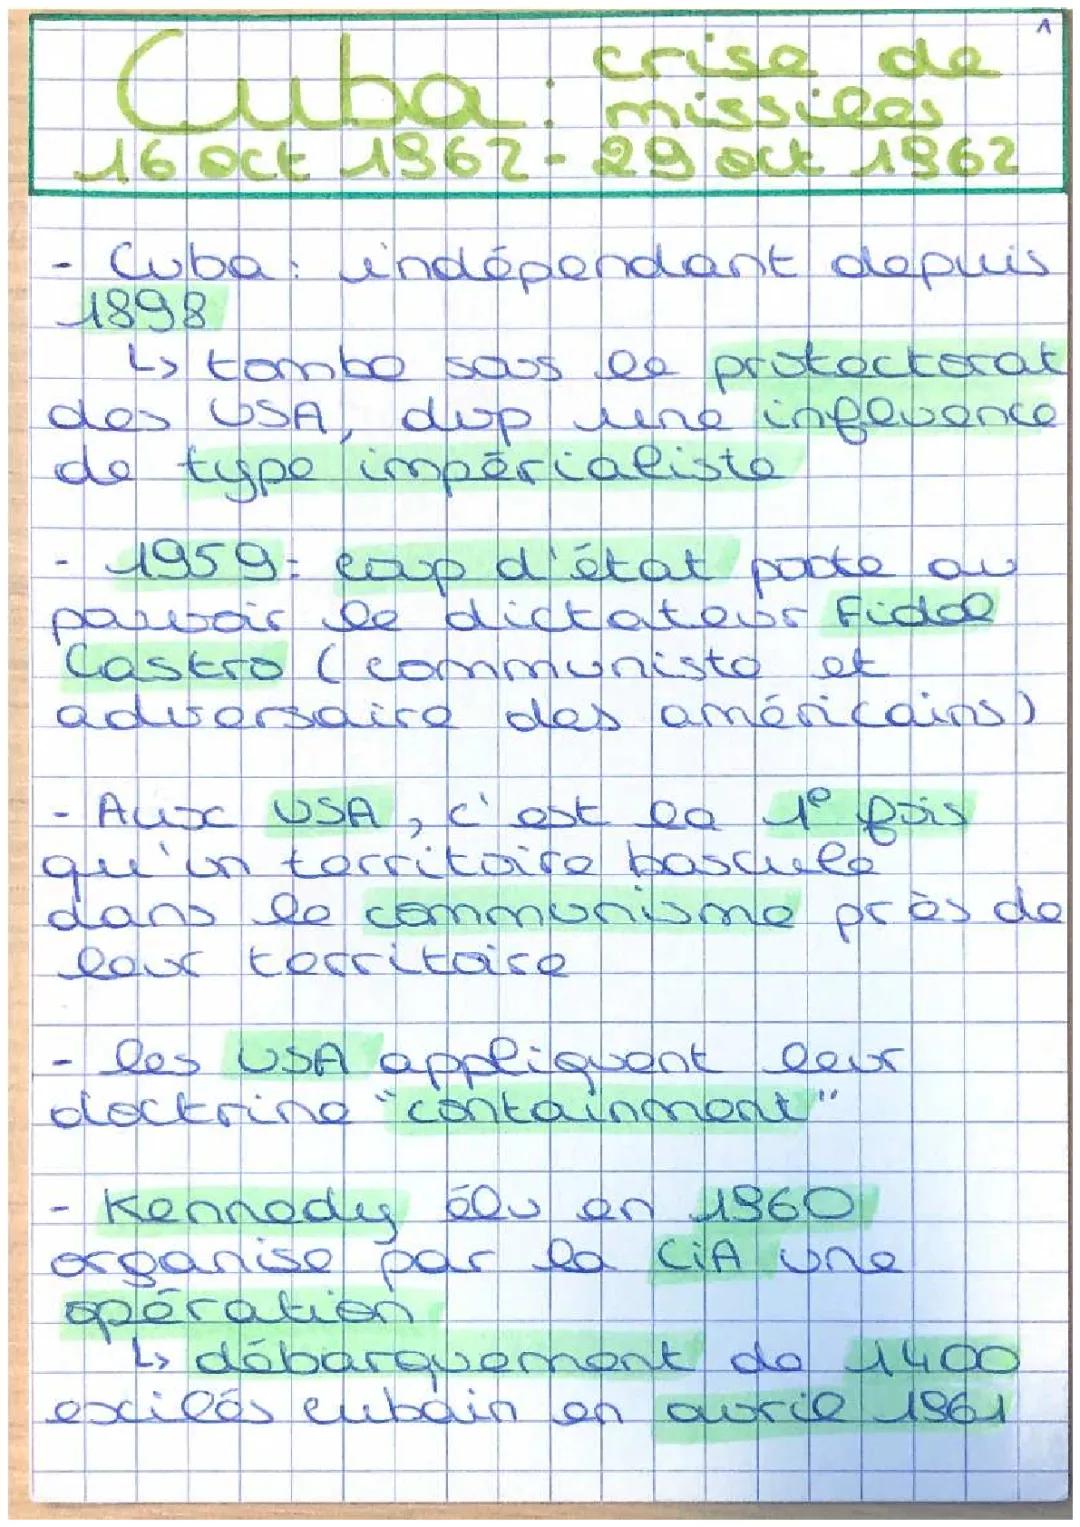 1
Cuba : crise de
missiles
16 oct 1962 - 29 oct 1962
- Cuba : indépendant depuis
1898
↳ tombe sous le protectorat
des USA, dup une influence
de type impérialiste
- 1959 : coup d'état porte au
pouvoir le dictateur Fidel
Castro (communiste et
adversaire des américains)
- Aux USA, c'est la 1e fois
qu'un territoire bascule
dans le communisme près de
leur territoire
- les USA appliquent leur
doctrine "containment"
- Kennedy élu en 1960
organise par la CiA une
opération
↳ débarquement de 1400
exilés cubain en avril 1961